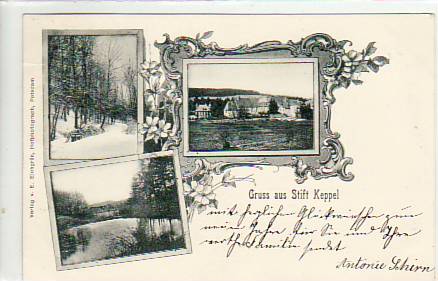 Verlag v. E. Eichgrün, Hofphotograph, Potsdam
Gruss aus Stift Keppel
mit herzlichen Glückwünschen zum
neuen Jahre für Sie und Ihre
werthe Familie sendet
Antonie Schirn